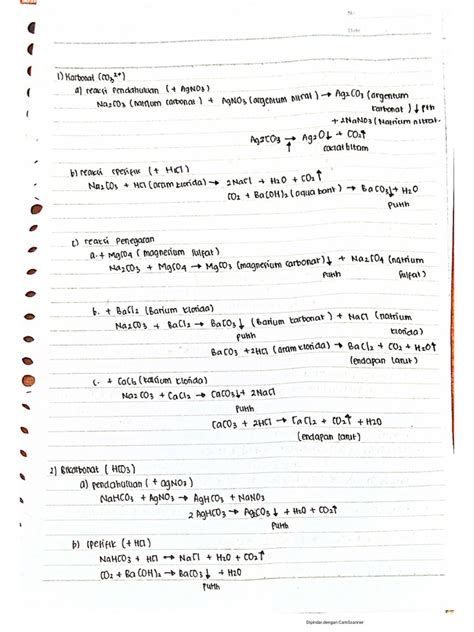 No.
Date
1) Karbonat (CO3²⁺)
a) reaksi pendahuluan (+ AgNO3)
Na2CO3 (natrium carbonat) + AgNO3 (argentum nitrat) → Ag2CO3 (argentum
karbonat) ↓ pth
+ 2NaNO3 (Natrium nitrat.
Ag2CO3 → Ag2O↓ + CO2↑
↑ coklat hitam
b) reaksi spesifik (+ HCl)
Na2CO3 + HCl (asam klorida) → 2NaCl + H2O + CO2↑
CO2 + Ba(OH)2 (aqua barit) → BaCO3↓ + H2O
Putih
c) reaksi Penegasan
a. + MgSO4 (magnesium sulfat)
Na2CO3 + MgSO4 → MgCO3 (magnesium carbonat)↓ + Na2SO4 (natrium
Putih sulfat)
b. + BaCl2 (Barium klorida)
Na2CO3 + BaCl2 → BaCO3↓ (Barium karbonat) + NaCl (natrium
Putih klorida)
BaCO3 + 2HCl (asam klorida) → BaCl2 + CO2 + H2O↑
(endapan larut)
c. + CaCl2 (kalsium klorida)
Na2CO3 + CaCl2 → CaCO3↓ + 2NaCl
Putih
CaCO3 + 2HCl → CaCl2 + CO2↑ + H2O
(endapan larut)
2) Bikarbonat (HCO3)
a) pendahuluan (+ AgNO3)
NaHCO3 + AgNO3 → AgHCO3 + NaNO3
2 AgHCO3 → Ag2CO3 ↓ + H2O + CO2↑
Putih
b) spesifik (+ HCl)
NaHCO3 + HCl → NaCl + H2O + CO2↑
CO2 + Ba(OH)2 → BaCO3↓ + H2O
Putih
Dipindai dengan CamScanner